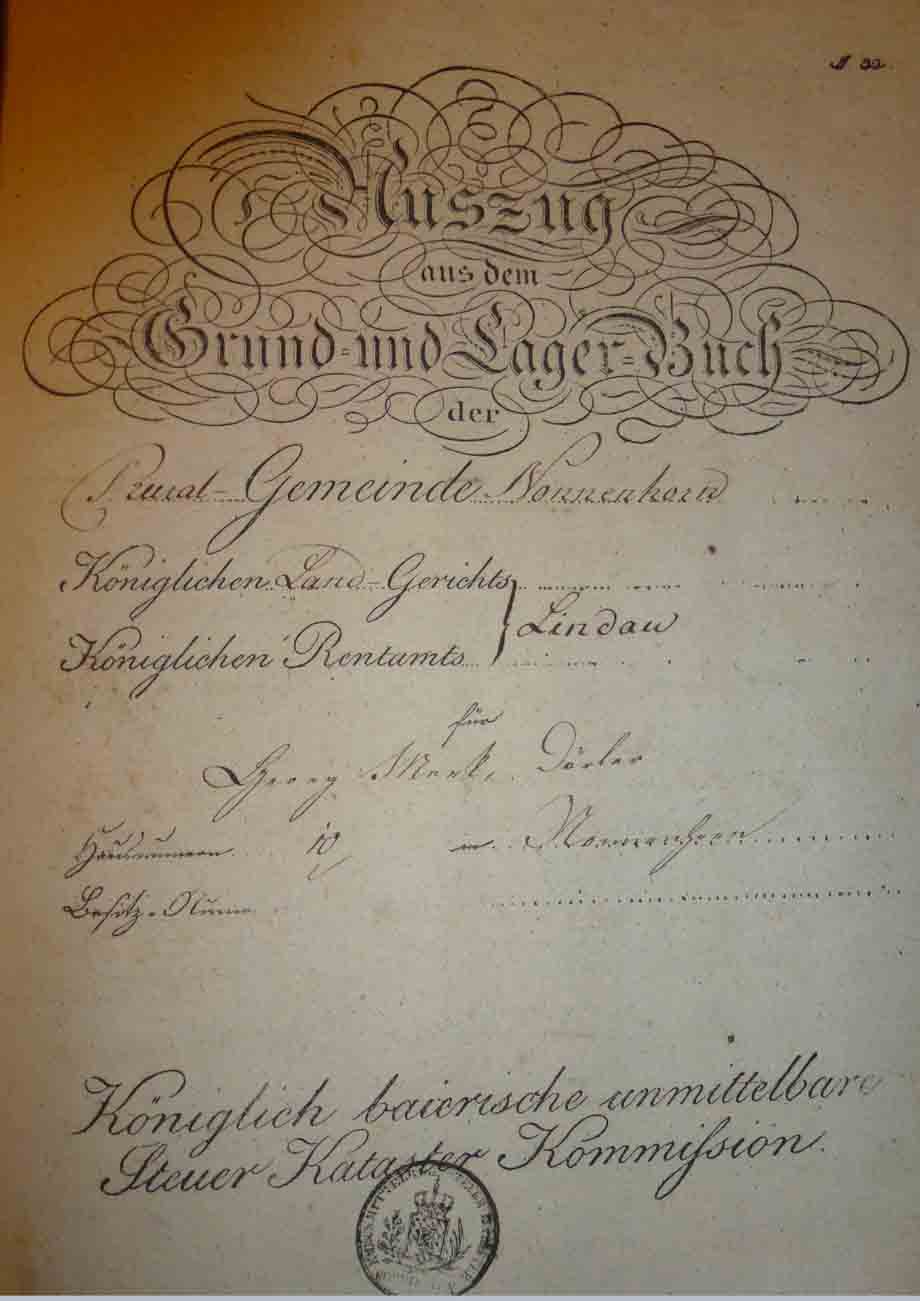 N 32.
Auszug
aus dem
Grund- und Lager-Buch
der
Rural-Gemeinde Nonnenhorn
Königlichen Land-Gerichts
Lindau
Königlichen Rentamts
für
Georg Merk, Dörler
Hausnummern 10 in Nonnenhorn
Besitz-Numer
Königlich baierische unmittelbare
Steuer Kataster Kommission.